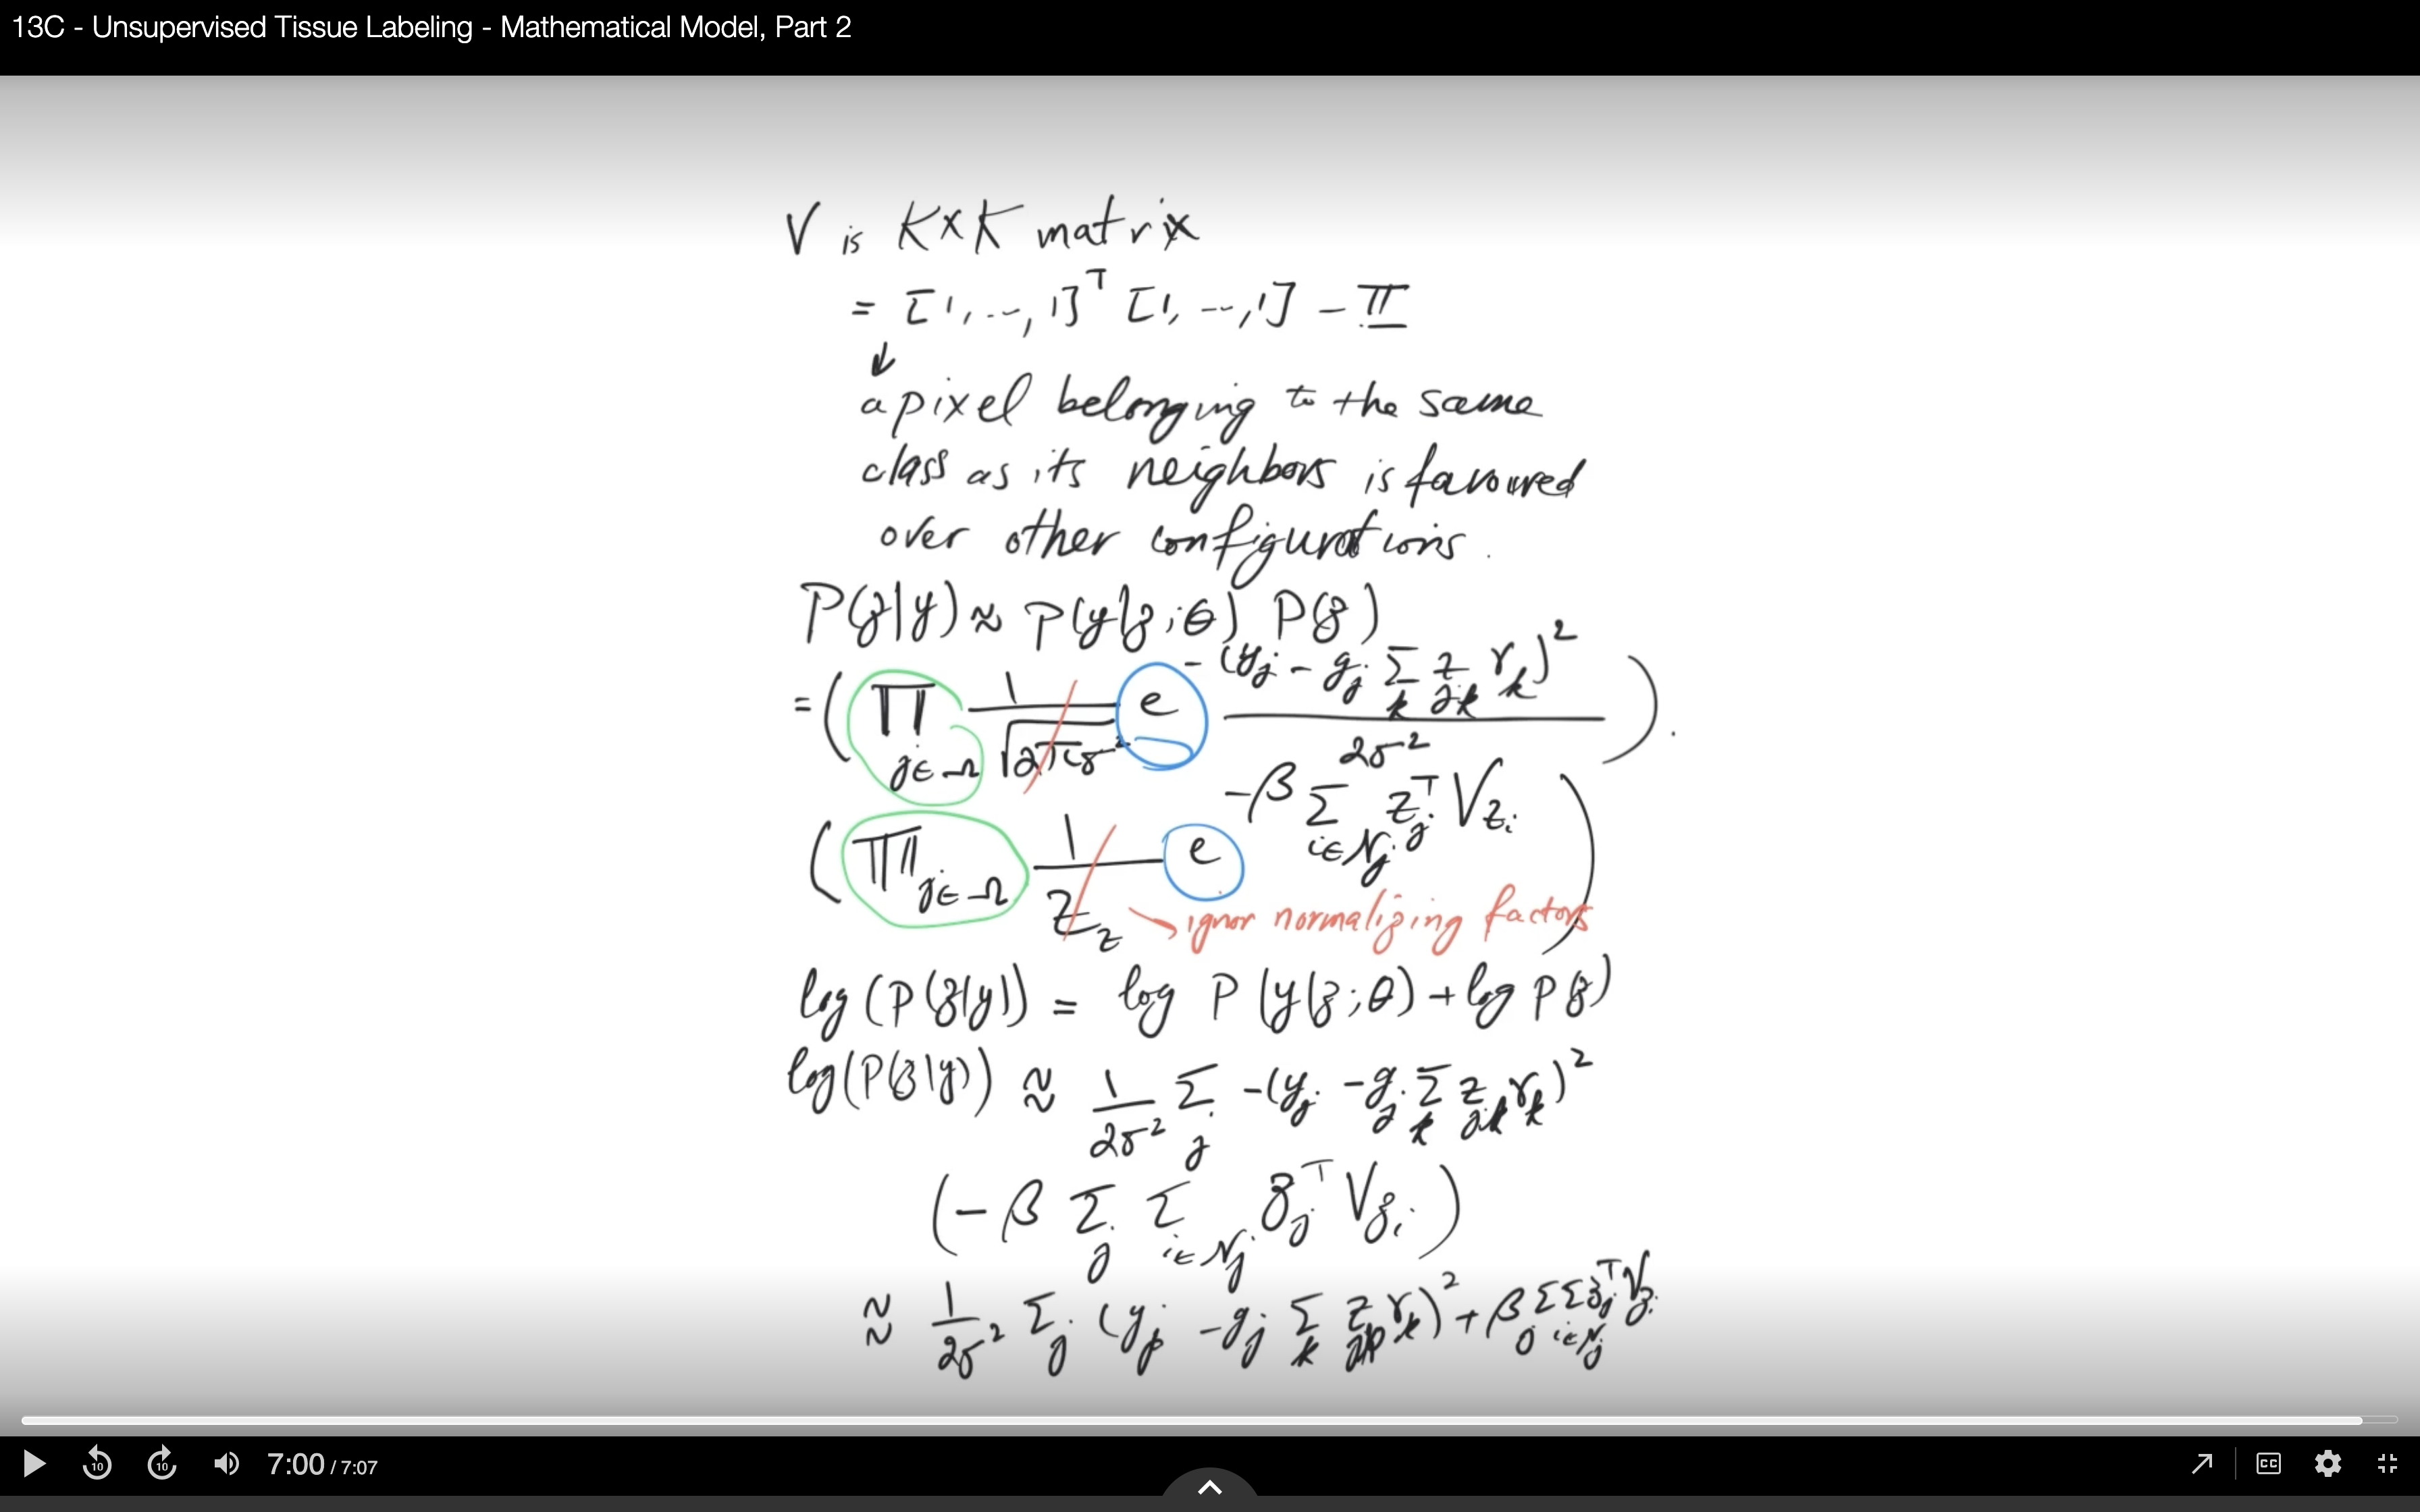 13C - Unsupervised Tissue Labeling - Mathematical Model, Part 2
V is K×K matrix
= [1, ..., 1]ᵀ [1, ..., 1] − II
↓
a pixel belonging to the same
class as its neighbors is favoured
over other configurations.
P(z|y) ≈ P(y|z;θ) P(z)
= ( ∏_{j∈Ω} 1/√(2πσ²) e^{−(y_j − g_j Σ_k z_{jk} r_k)² / 2σ²} ) .
( ∏_{j∈Ω} 1/Z_z e^{−β Σ_{i∈N_j} z_jᵀ V z_i} )
ignor normalizing factors
log(P(z|y)) = log P(y|z;θ) + log P(z)
log(P(z|y)) ≈ 1/2σ² Σ_j −(y_j − g_j Σ_k z_{jk} r_k)²
(−β Σ_j Σ_{i∈N_j} z_jᵀ V z_i)
≈ 1/2σ² Σ_j (y_j − g_j Σ_k z_{jk} r_k)² + β Σ_j Σ_{i∈N_j} z_jᵀ V z_i
10 10 7:00 / 7:07 CC